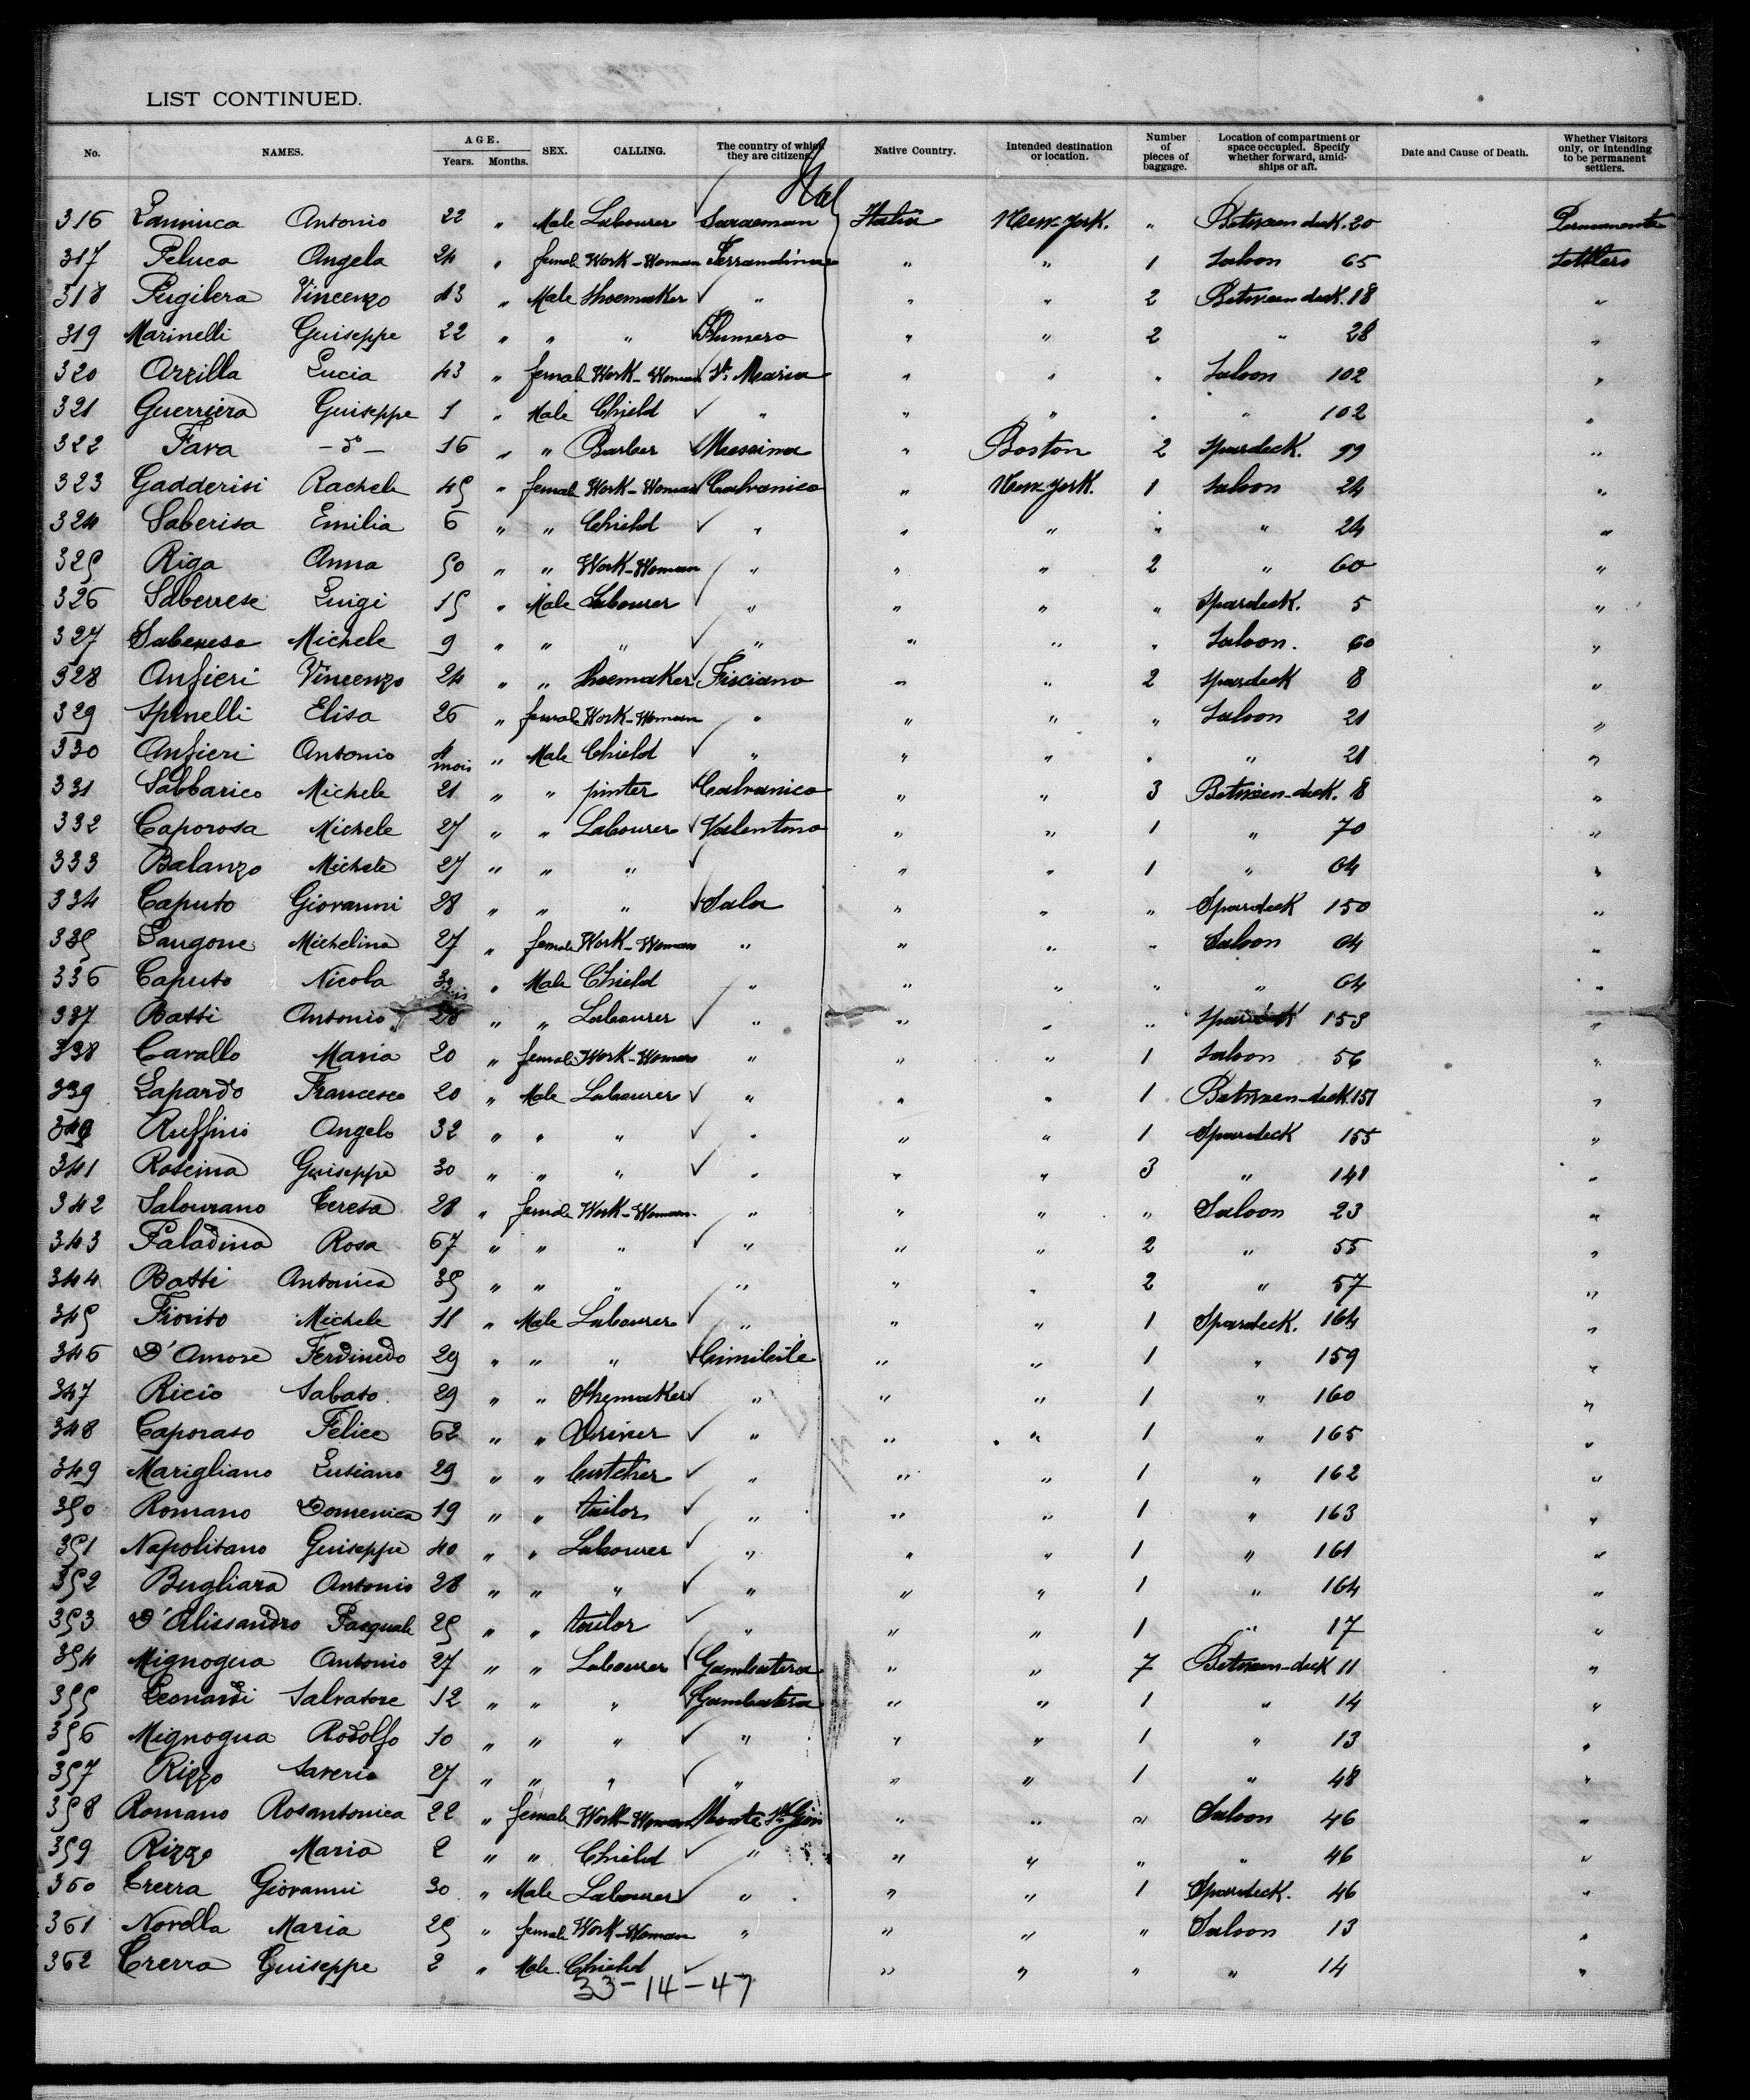 LIST CONTINUED.
No. NAMES. AGE. Years. Months. SEX. CALLING. The country of which they are citizens. Native Country. Intended destination or location. Number of pieces of baggage. Location of compartment or space occupied. Specify whether forward, amidships or aft. Date and Cause of Death. Whether Visitors only, or intending to be permanent settlers.
Ital
316 Antonio 22 " Male Labourer Italia New-York. " Between deck. 20 Permanente
317 Peluca Angela 24 " female Work-Woman Ferrandina " " 1 Saloon 65 Settlers
318 Pugilera Vincenzo 43 " Male Shoemaker ✓ " " " 2 Between deck. 18 "
319 Marinelli Guiseppe 22 " " " ✓ " " 2 " 28 "
320 Arzilla Lucia 43 " female Work-Woman ✓ St. Maria " " " Saloon 102 "
321 Guerriera Guiseppe 1 " Male Chield ✓ " " " " " 102 "
322 Fava -do- 16 " " Barber ✓ Messina " Boston 2 Spardeck. 99 "
323 Gadderisi Rachele 45 " female Work-Woman Calvanico " New-York. 1 Saloon 24 "
324 Saberisa Emilia 6 " " Chield ✓ " " " " " 24 "
325 Riga Anna 50 " " Work-Woman ✓ " " " 2 " 60 "
326 Saberrese Luigi 15 " Male Labourer ✓ " " " " Spardeck. 5 "
327 Saberese Michele 9 " " " ✓ " " " " Saloon. 60 "
328 Anfieri Vincenzo 24 " " Shoemaker ✓ Fisciano " " 2 Spardeck 8 "
329 Spinelli Elisa 26 " female Work-Woman " " " " Saloon 21 "
330 Anfieri Antonio 4 mois " Male Chield ✓ " " " " " 21 "
331 Sabbarico Michele 21 " " pinter ✓ Calvanico " " 3 Between-deck. 8 "
332 Caporosa Michele 27 " " Labourer ✓ Valentino " " 1 " 70 "
333 Balanzo Michele 27 " " " ✓ " " 1 " 64 "
334 Caputo Giovanni 28 " " " ✓ Sala " " " Spardeck 150 "
335 Langone Michelina 27 " female Work-Woman " " " " Saloon 64 "
336 Caputo Nicola " Male Chield " " " " " 64 "
337 Batti Antonio 28 " " Labourer ✓ " " " " Spardeck 153 "
338 Cavallo Maria 20 " female Work-Woman " " " 1 Saloon 56 "
339 Lapardo Francesco 20 " Male Labourer ✓ " " " 1 Between-deck. 151 "
340 Ruffini Angelo 32 " " " ✓ " " " 1 Spardeck 155 "
341 Roscina Guiseppe 30 " " " ✓ " " " 3 " 148 "
342 Salourano Teresa 28 " female Work-Woman. " " " " Saloon 23 "
343 Paladina Rosa 67 " " " ✓ " " " 2 " 55 "
344 Batti Antonia 35 " " " " " " 2 " 57 "
345 Fiorito Michele 11 " Male Labourer ✓ " " " 1 Spardeck. 164 "
346 D'Amore Ferdinedo 29 " " " ✓ Cimitile " " 1 " 159 "
347 Ricio Sabato 29 " " Shemaker ✓ " " " 1 " 160 "
348 Caporaso Felice 62 " " Driver ✓ " " " 1 " 165 "
349 Marigliano Lusiano 29 " " butcher ✓ " " " 1 " 162 "
350 Romano Domenica 19 " " tailor ✓ " " " 1 " 163 "
351 Napolitano Guiseppe 40 " " Labourer ✓ " " " 1 " 161 "
352 Bugliara Antonio 28 " " " ✓ " " " 1 " 164 "
353 D'Alissandro Pasquale 25 " " tailor ✓ " " " 1 " 17 "
354 Mignogua Antonio 27 " " Labourer ✓ Gambatera " " 7 Between-deck 11 "
355 Leonardi Salvatore 12 " " " ✓ Gambatera " " 1 " 14 "
356 Mignogua Rodolfo 10 " " " ✓ " " " 1 " 13 "
357 Rizzo Saverio 27 " " " ✓ " " " 1 " 48 "
358 Romano Rosantonica 22 " female Work-Woman Monte St. Giov " " " Saloon 46 "
359 Rizzo Maria 2 " " Chield ✓ " " " " " 46 "
360 Crerra Giovanni 30 " Male Labourer ✓ " " " 1 Spardeck. 46 "
361 Novella Maria 25 " female Work-Woman " " " " Saloon 13 "
362 Crerra Guiseppe 2 " Male Chield ✓ " " " " 14 "
33-14-47